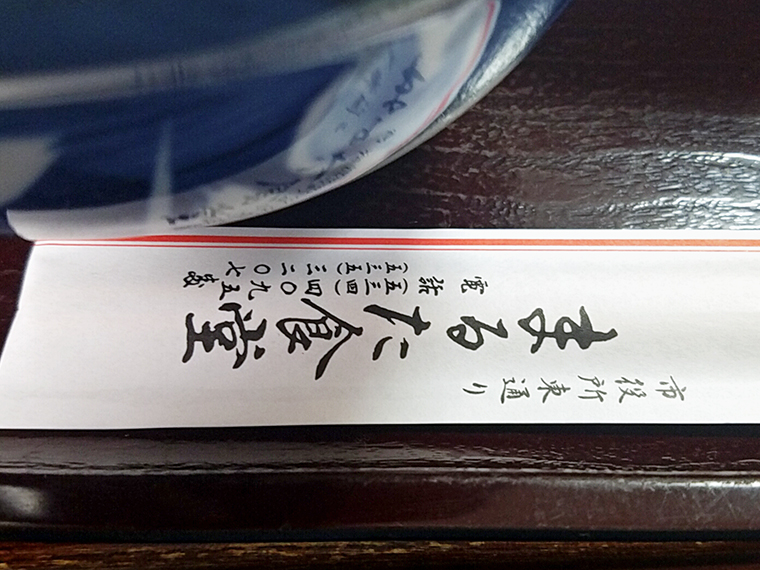 市役所東通り
まるた食堂
電話
(五三四)四〇九五
(五三五)三二〇七
番